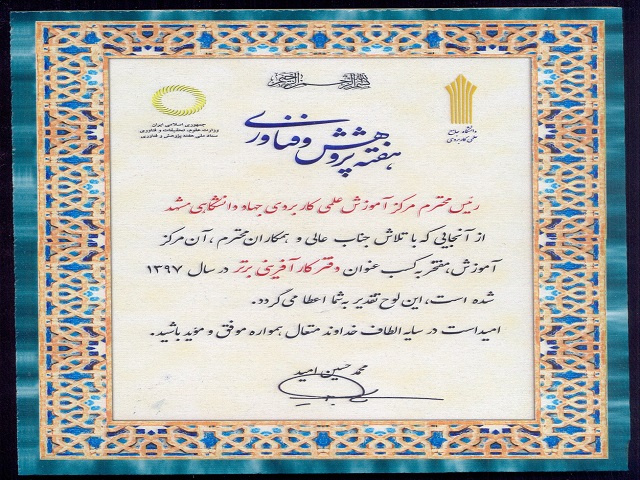 بسم الله الرحمن الرحیم
دانشگاه جامع
علمی کاربردی
جمهوری اسلامی ایران
وزارت علوم، تحقیقات و فناوری
ستاد ملی هفته پژوهش و فناوری
هفته پژوهش و فناوری
رئیس محترم مرکز آموزش علمی کاربردی جهاد دانشگاهی مشهد
از آنجایی که با تلاش جناب عالی و همکاران محترم، آن مرکز
آموزش، مفتخر به کسب عنوان دفتر کارآفرینی برتر در سال ۱۳۹۷
شده است، این لوح تقدیر به شما اعطا می گردد.
امید است در سایه الطاف خداوند متعال همواره موفق و مؤید باشید.
محمد حسین امید